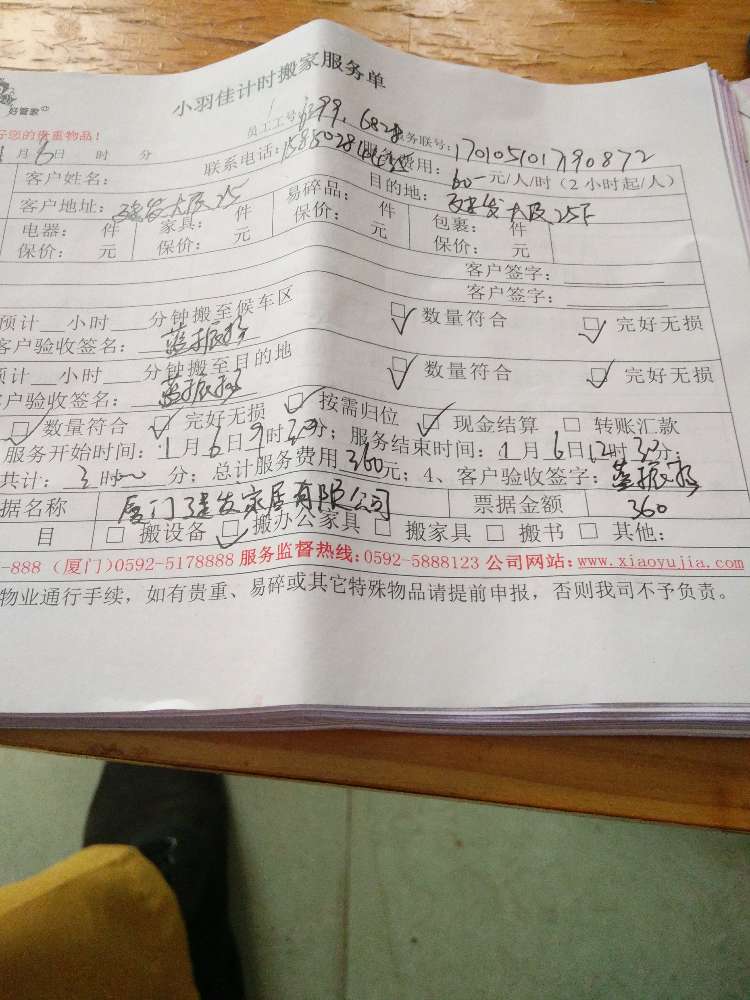 好管家
小羽佳计时搬家服务单
您的贵重物品！
员工工号: 6828 务联号: 170105101790872
月 6日 时 分 联系电话: 服务费用: 60元/人/时（2小时起/人）
客户姓名:
客户地址: 建发大厦25 易碎品: 件 目的地: 建发大厦25F
电器: 件 家具: 件 保价: 元 包裹: 件
保价: 元 保价: 元 保价: 元
客户签字:
客户签字:
预计__小时__分钟搬至候车区 数量符合 完好无损
客户验收签名: 蓝振
预计__小时__分钟搬至目的地 数量符合 完好无损
户验收签名: 蓝振
数量符合 完好无损 按需归位 现金结算 转账汇款
服务开始时间: 1月6日9时30分；服务结束时间: 1月6日12时30分；
共计: 3时 分；总计服务费用360元；4、客户验收签字: 蓝振
据名称 厦门建发家居有限公司 票据金额 360
目 搬设备 搬办公家具 搬家具 搬书 其他:
-888（厦门）0592-5178888 服务监督热线:0592-5888123 公司网站:www.xiaoyujia.com
物业通行手续，如有贵重、易碎或其它特殊物品请提前申报，否则我司不予负责。